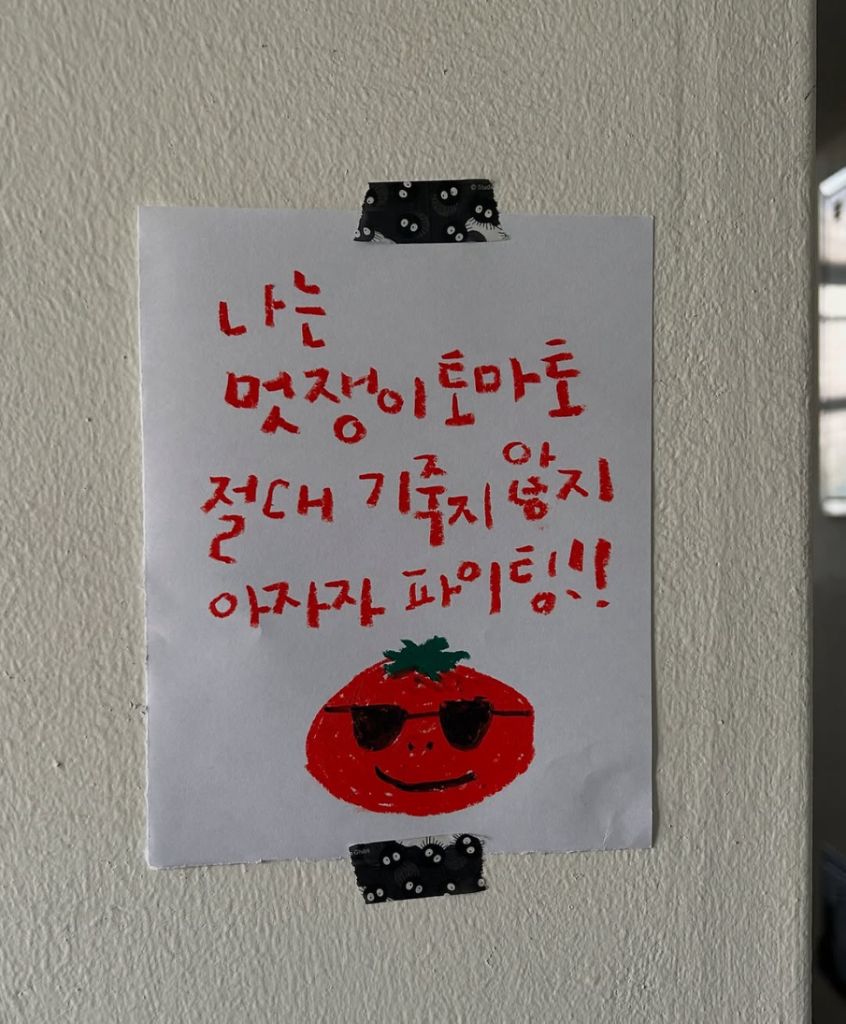 나는
멋쟁이토마토
절대 기죽지 않지
아자자 파이팅!!